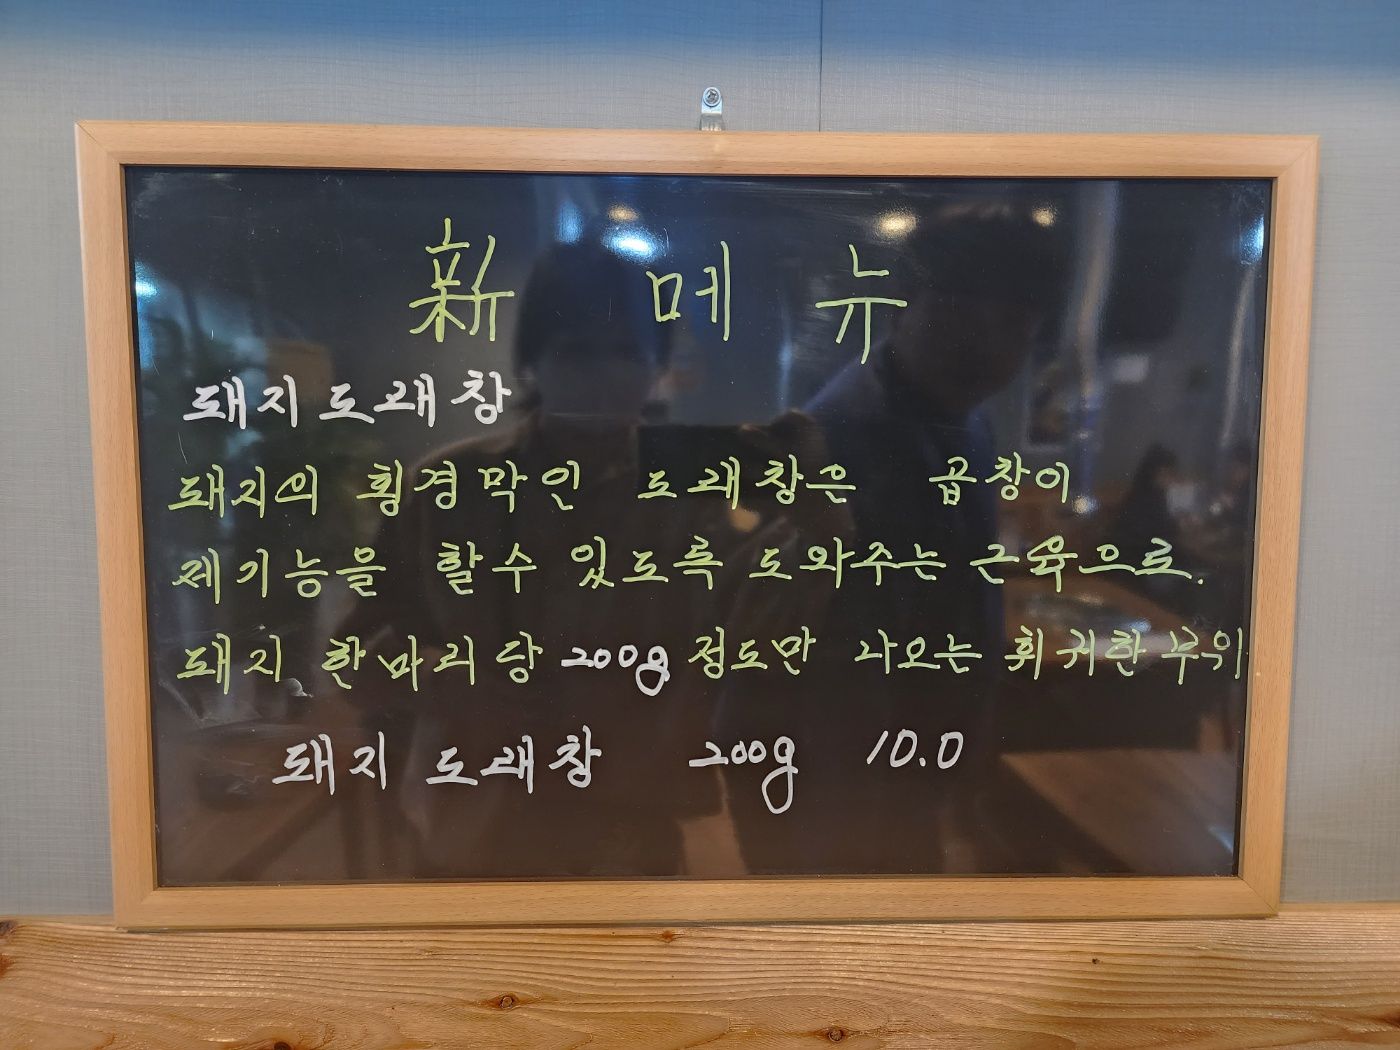 新 메 뉴
돼지 도래창
돼지의 횡경막인 도래창은 곱창이
제기능을 할수 있도록 도와주는 근육으로.
돼지 한마리당 200g 정도만 나오는 휘귀한 부위
돼지 도래창 200g 10.0